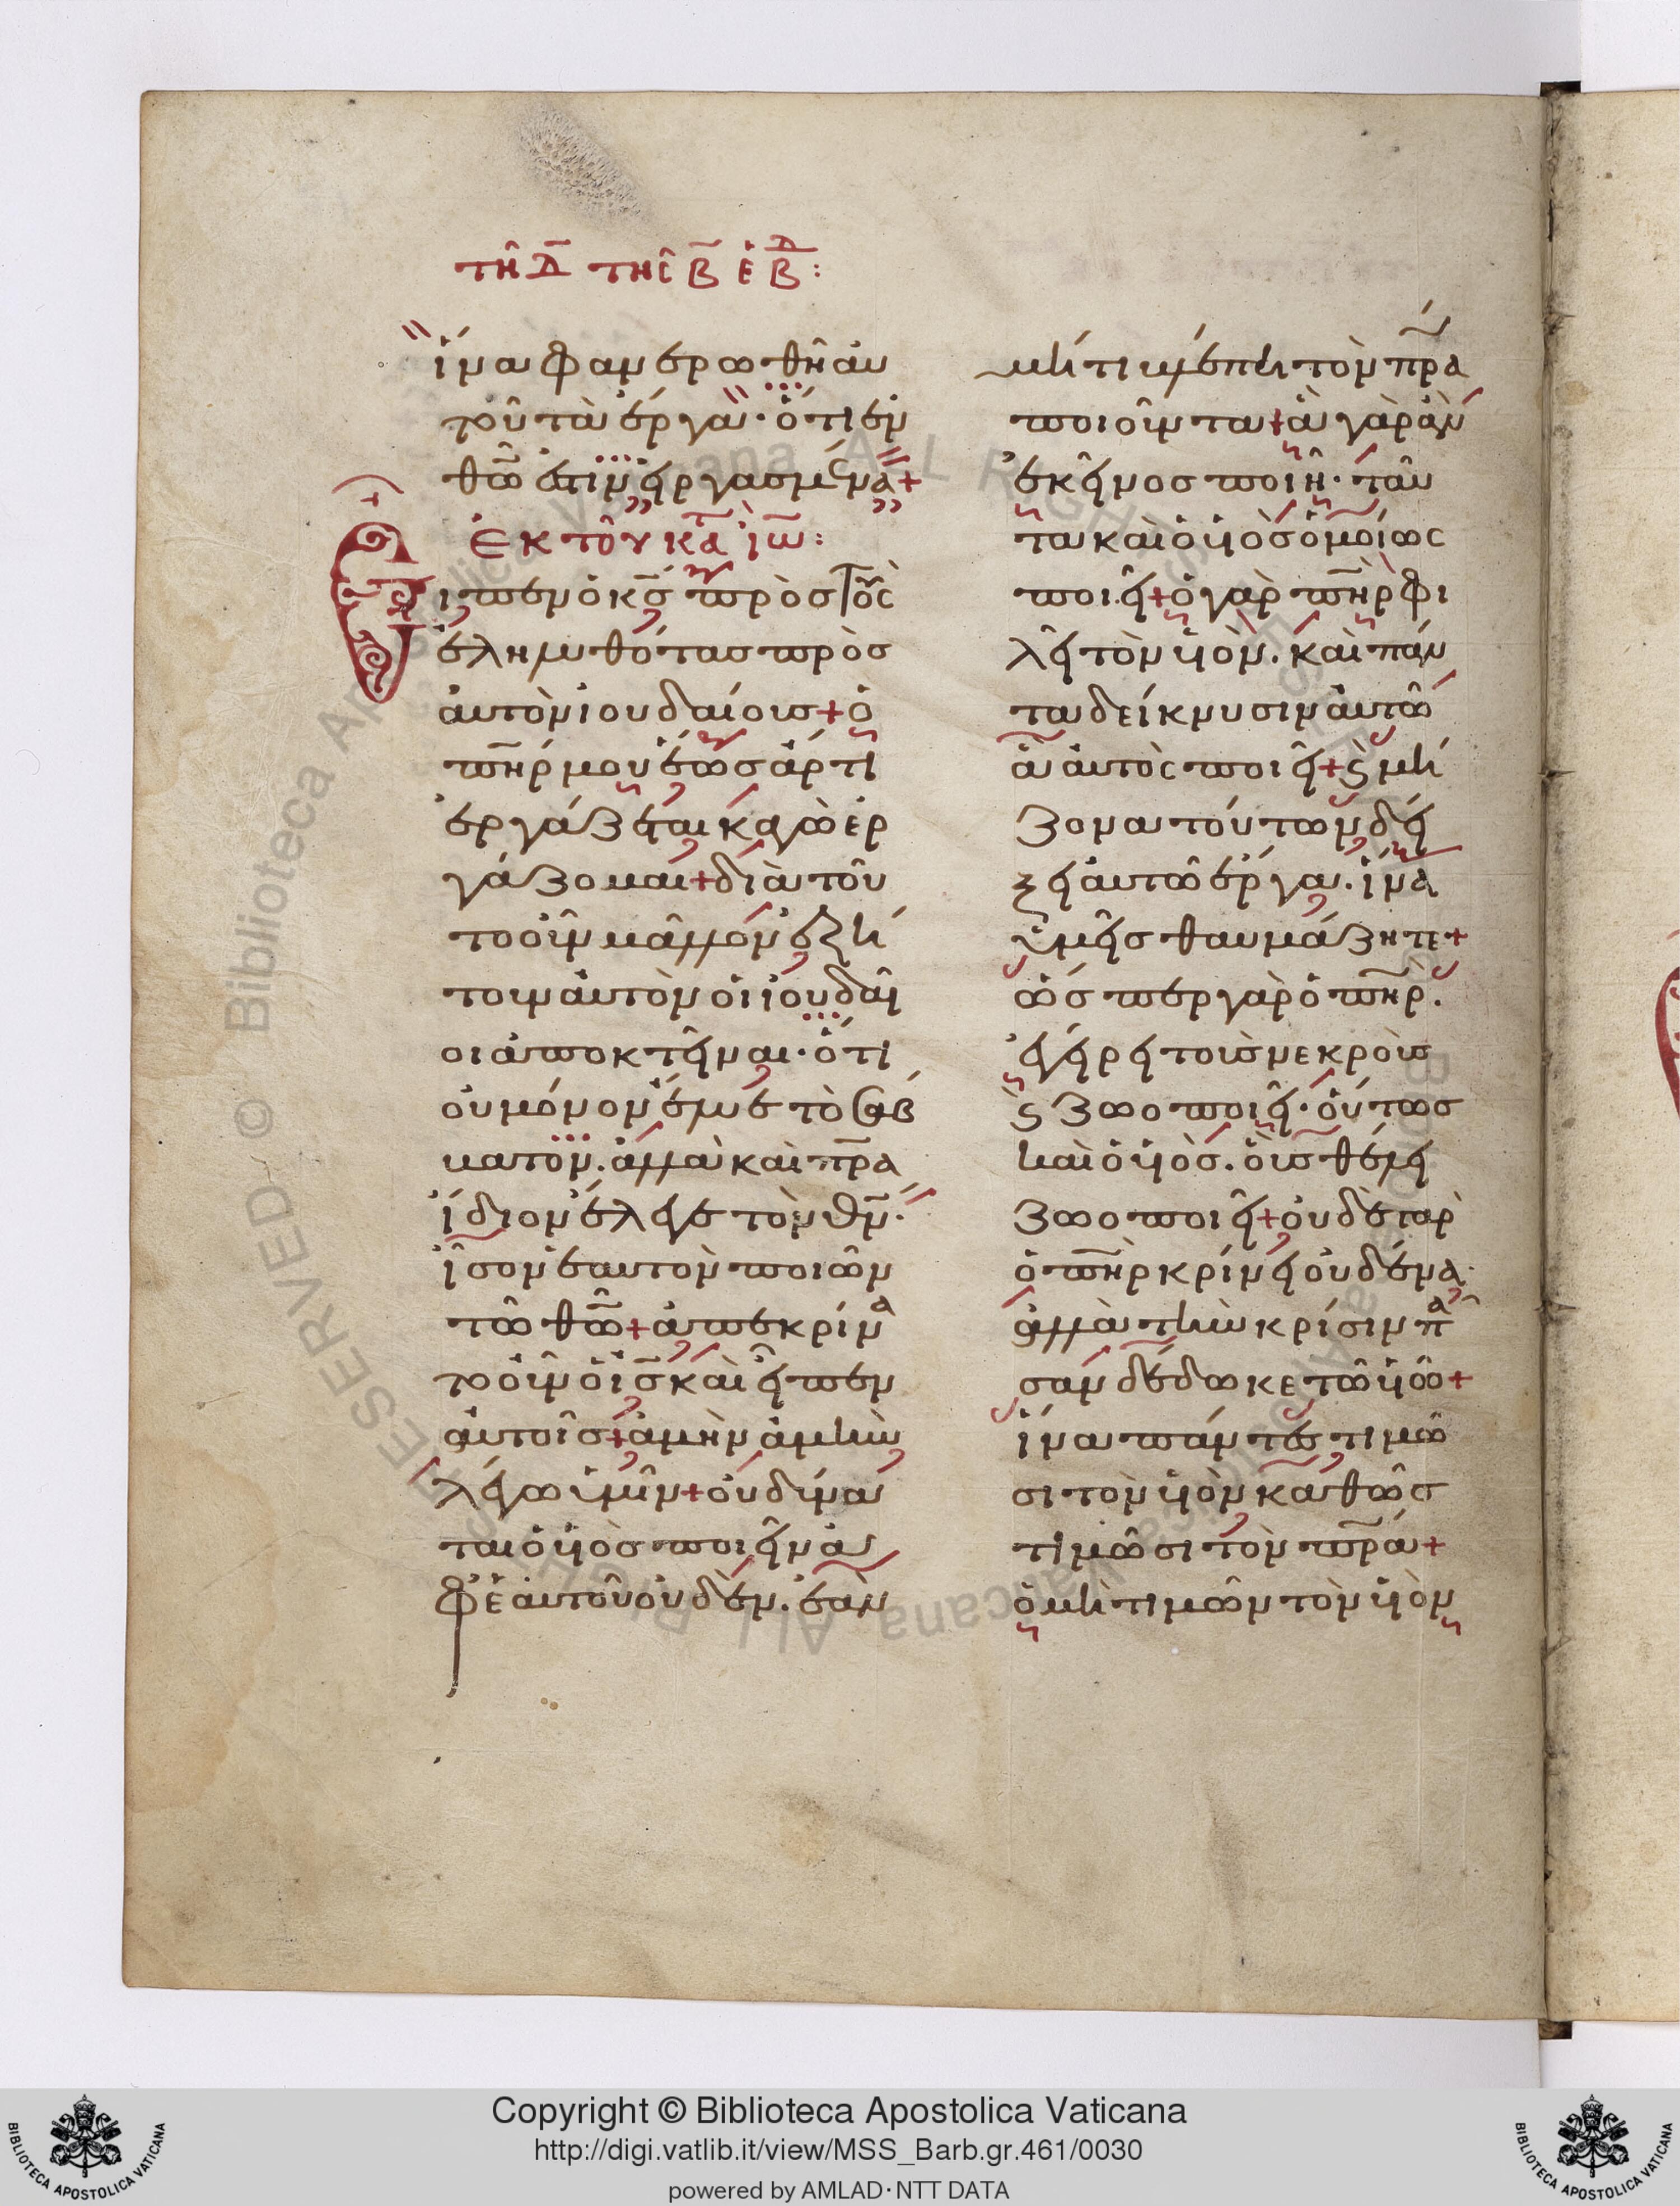 τῆ δ̄ τῆς β̄ ἑβ̄δ:
ἵνα φανερωθῆ αὐ
τοῦ τὰ ἔργα· ὅτι ἐν
θῶ ἐστὶν εἰργασμένα+
Ἐκ τοῦ κατὰ ἰω̄:
Εἶπεν ὁ κς̄ πρὸς τοὺς
ἐληλυθότας πρὸς
αὐτὸν ἰουδαίους+ὁ
πη̄ρ μου ἕως ἄρτι
ἐργάζεται καγὼ ἐρ
γάζομαι+διὰ τοῦ
το οὖν μᾶλλον ἐζή
τουν αὐτὸν οἱ ἰουδαῖ
οι ἀποκτεῖναι· ὅτι
οὐ μόνον ἔλυε τὸ σάβ
βατον. ἀλλὰ καὶ πρ̄α
ἴδιον ἔλεγε τὸν θν̄·
ἶσον ἑαυτὸν ποιῶν
τῶ θῶ+ἀπεκρίνα
το οὖν ὁ ις̄ καὶ εἶπεν
αὐτοῖς+ἀμὴν ἀμὴν
λέγω ὑμῖν+οὐ δύνα
ται ὁ υἱὸς ποιεῖν ἀ
φ' ἑαυτοῦ οὐδέν. ἐὰν
μή τι βλέπη τὸν πρ̄α
ποιοῦντα+ἃ γὰρ ἂν
ἐκεῖνος ποιῆ· ταῦ
τα καὶ ὁ υἱὸς ὁμοίως
ποιεῖ+ὁ γὰρ πη̄ρ φι
λεῖ τὸν υἱόν. καὶ πάν
τα δείκνυσιν αὐτῶ
ἃ αὐτὸς ποιεῖ+ϗ μεί
ζονα τούτων δεί
ξει αὐτῶ ἔργα. ἵνα
ὑμεῖς θαυμάζητε+
ὥσπερ γὰρ ὁ πη̄ρ.
ἐγείρει τοὺς νεκροὺς
ϗ ζωοποιεῖ· οὕτως
καὶ ὁ υἱός. οὓς θέλει
ζωοποιεῖ+οὐδὲ γὰρ
ὁ πη̄ρ κρίνει οὐδένα·
ἀλλὰ τὴν κρίσιν πᾶ
σαν δέδωκε τῶ υἱῶ+
ἵνα πάντες τιμῶ
σι τὸν υἱὸν καθὼς
τιμῶσι τὸν πρ̄α+
ὁ μὴ τιμῶν τὸν υἱὸν
Copyright © Biblioteca Apostolica Vaticana
http://digi.vatlib.it/view/MSS_Barb.gr.461/0030
powered by AMLAD·NTT DATA
BIBLIOTECA APOSTOLICA VATICANA
BIBLIOTECA APOSTOLICA VATICANA